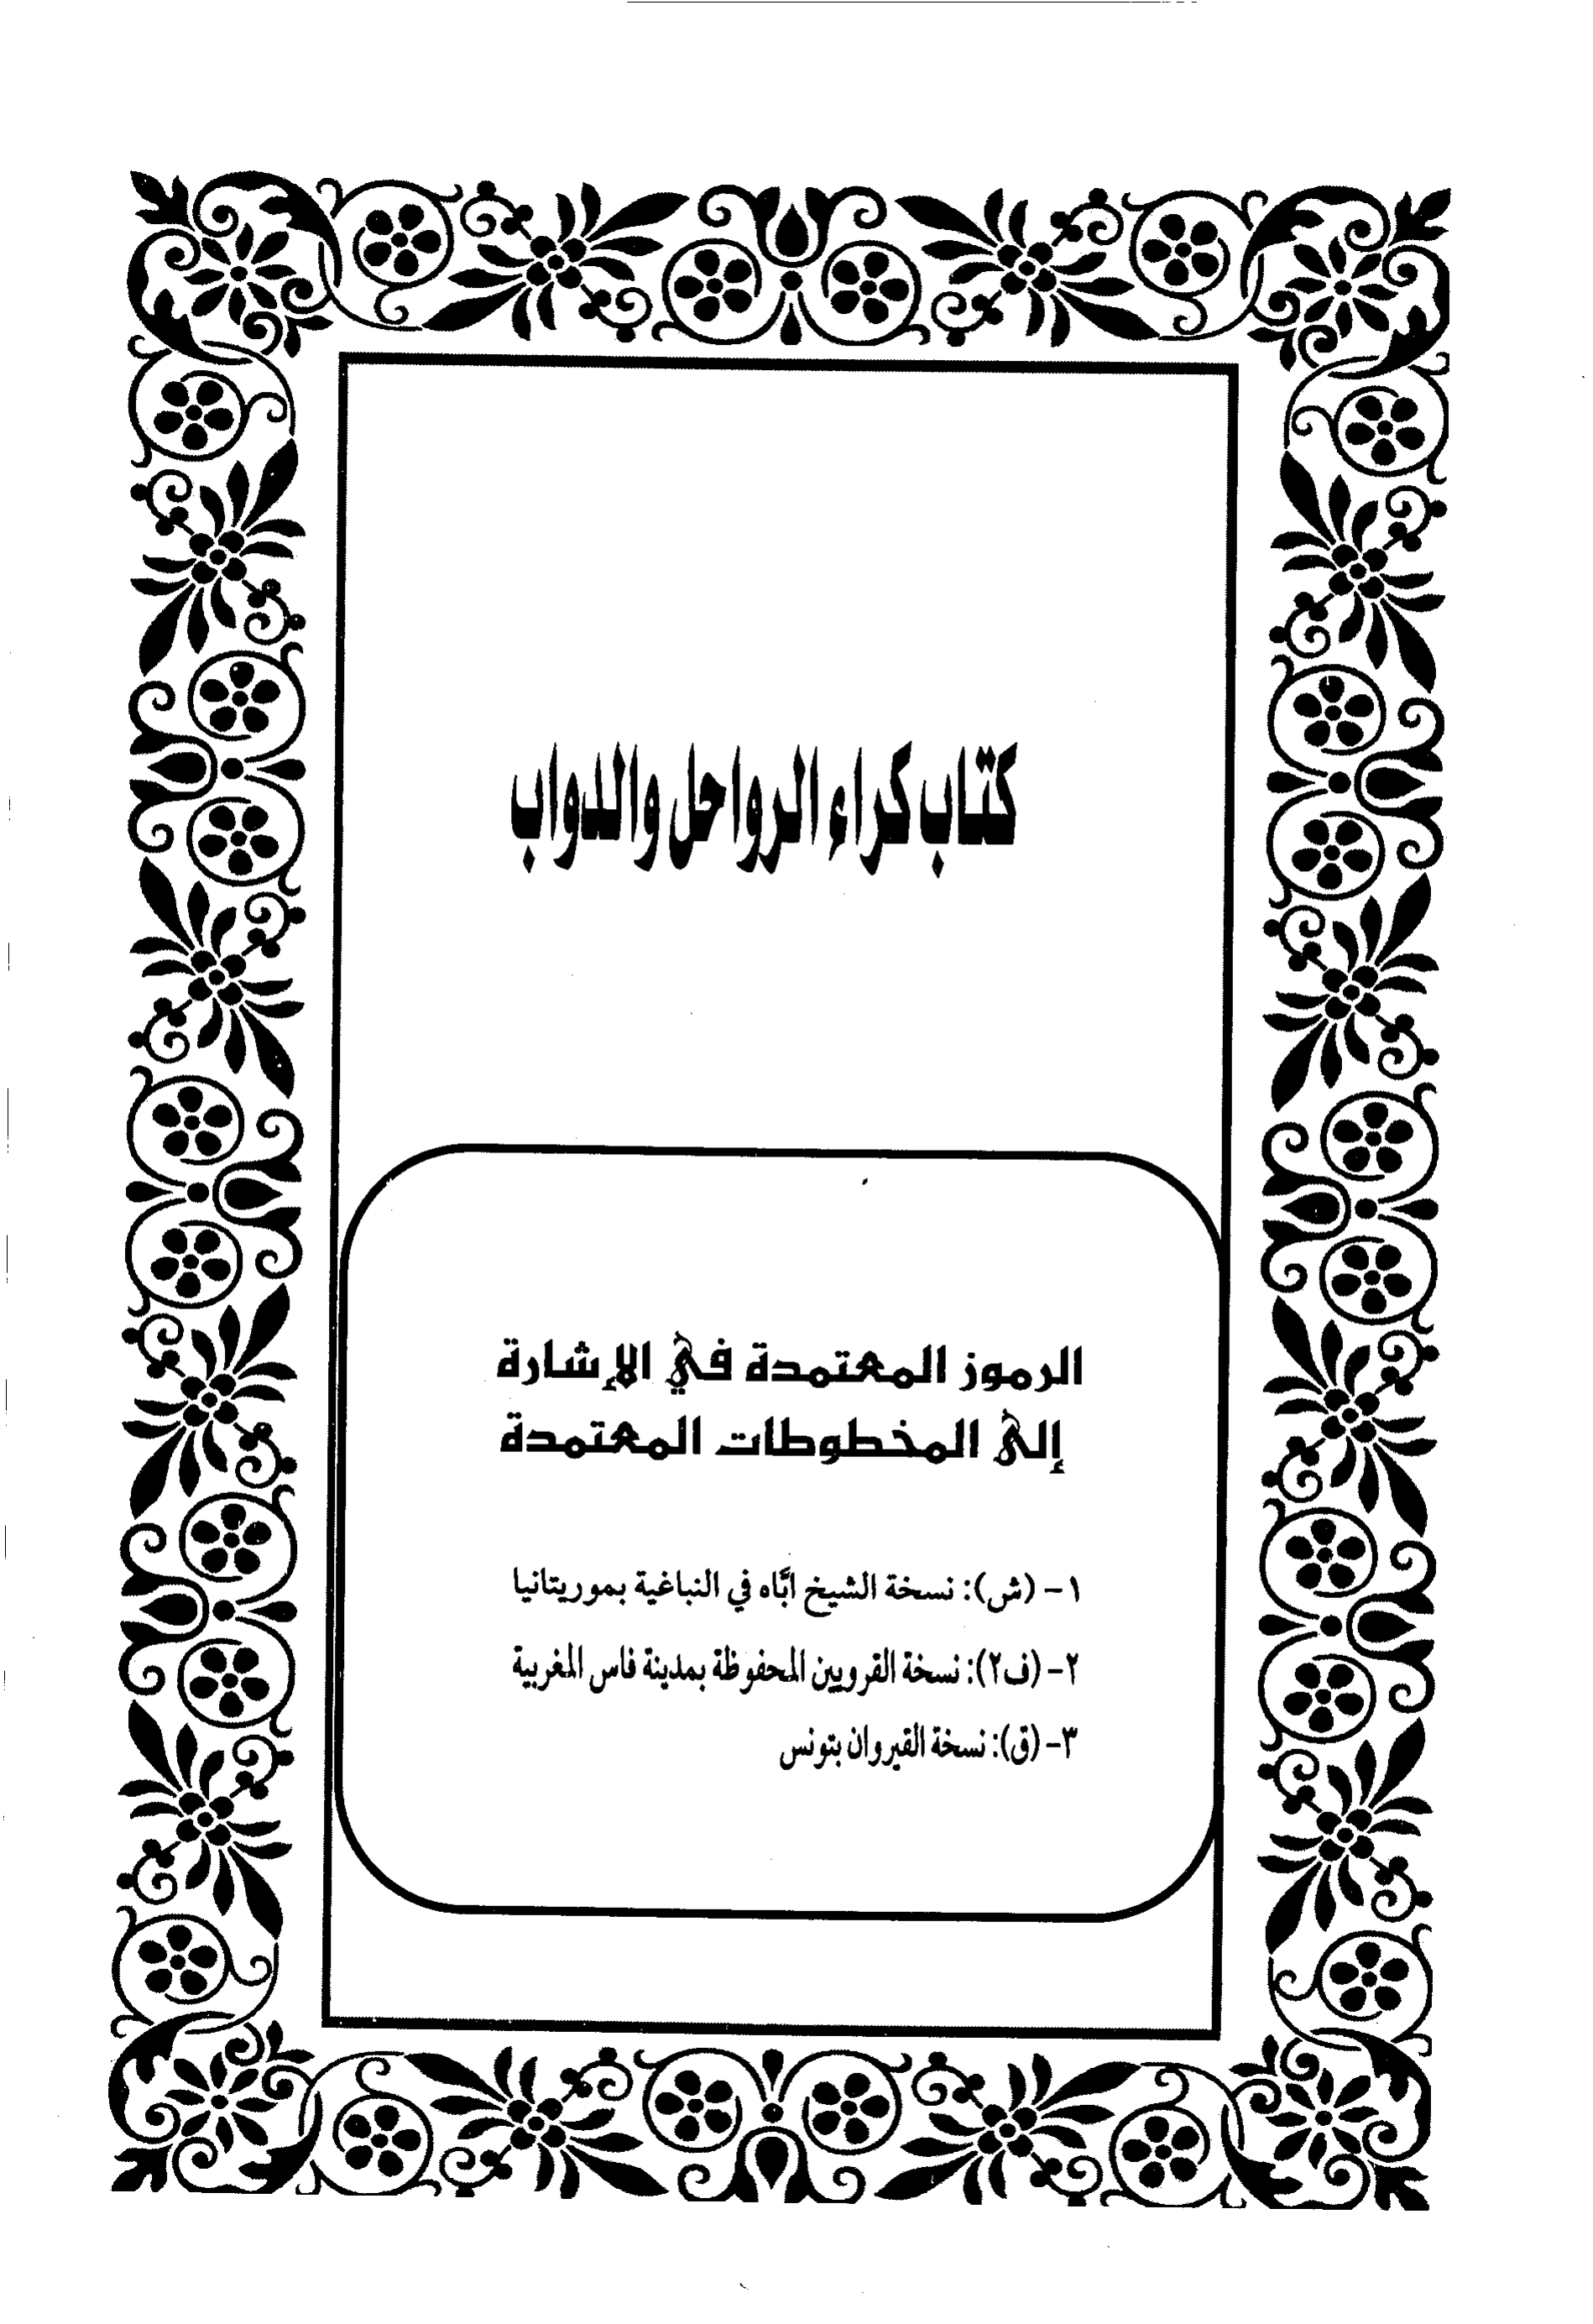 كتاب كراء الرواحل والدواب
الرموز المعتمدة في الإشارة
إلى المخطوطات المعتمدة
١- (ش): نسخة الشيخ ابَّاه في النباغية بموريتانيا
٢- (ف٢): نسخة القرويين المحفوظة بمدينة فاس المغربية
٣- (ق): نسخة القيروان بتونس